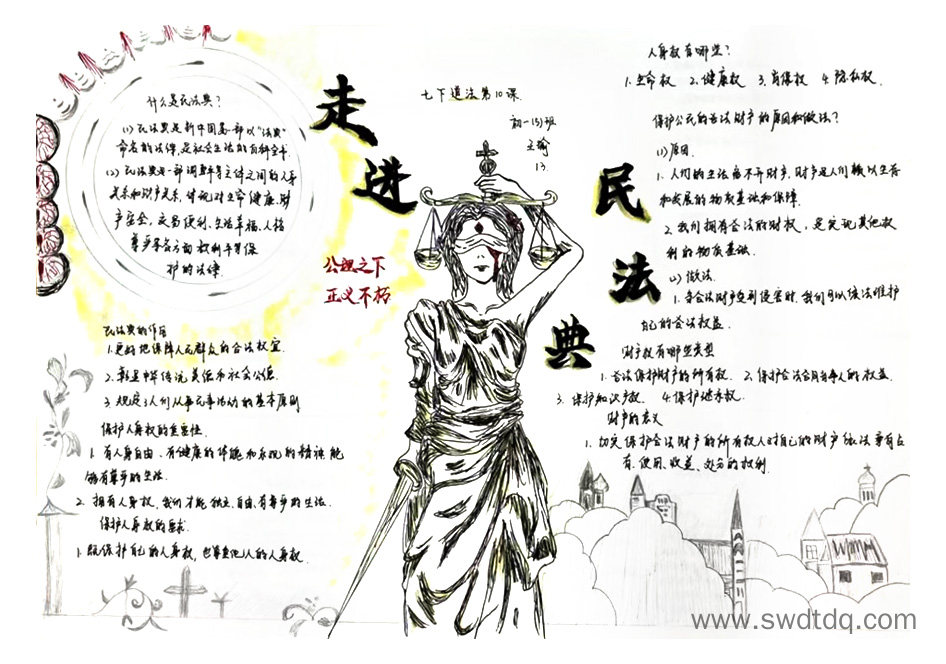 走进
民法典
七下道法第10课
初一(5)班
王瑜
13.
公理之下
正义不朽
什么是民法典?
(1) 民法典是新中国第一部以"法典"
命名的法律,是社会生活的百科全书
(2) 民法典是一部调整平等主体之间的人身
关系和财产关系,体现对生命健康、财
产安全、交易便利、生活幸福、人格
尊严等各方面权利平等保
护的法律
民法典的作用
1.更好地保障人民群众的合法权宜
2.彰显中华传统美德和社会公德
3.规定了人们从事民事活动的基本原则
保护人身权的重要性
1.有人身自由、有健康的体魄和乐观的精神能
够有尊严的生活
2.拥有人身权,我们才能独立、自由、有尊严的生活
保护人身权的要求
1.既保护自己的人身权,也尊重他人的人身权
人身权有哪些?
1.生命权 2.健康权 3.肖像权 4.隐私权
保护公民的合法财产的原因和做法?
(1)原因
1.人们的生活离不开财产,财产是人们赖以生存
和发展的物质基础和保障
2.我们拥有合法的财权,是实现其他权
利的物质基础
(2)做法
1.当合法财产受到侵害时,我们可以依法维护
自己的合法权益
财产权有哪些类型
1.合法保护财产的所有权 2.保护合法合同当事人的权益
3.保护知识产权 4.保护继承权
财产的意义
1.切实保护合法财产的所有权人对自己的财产依法享有占
有、使用、收益、处分的权利
www.swdtdq.com